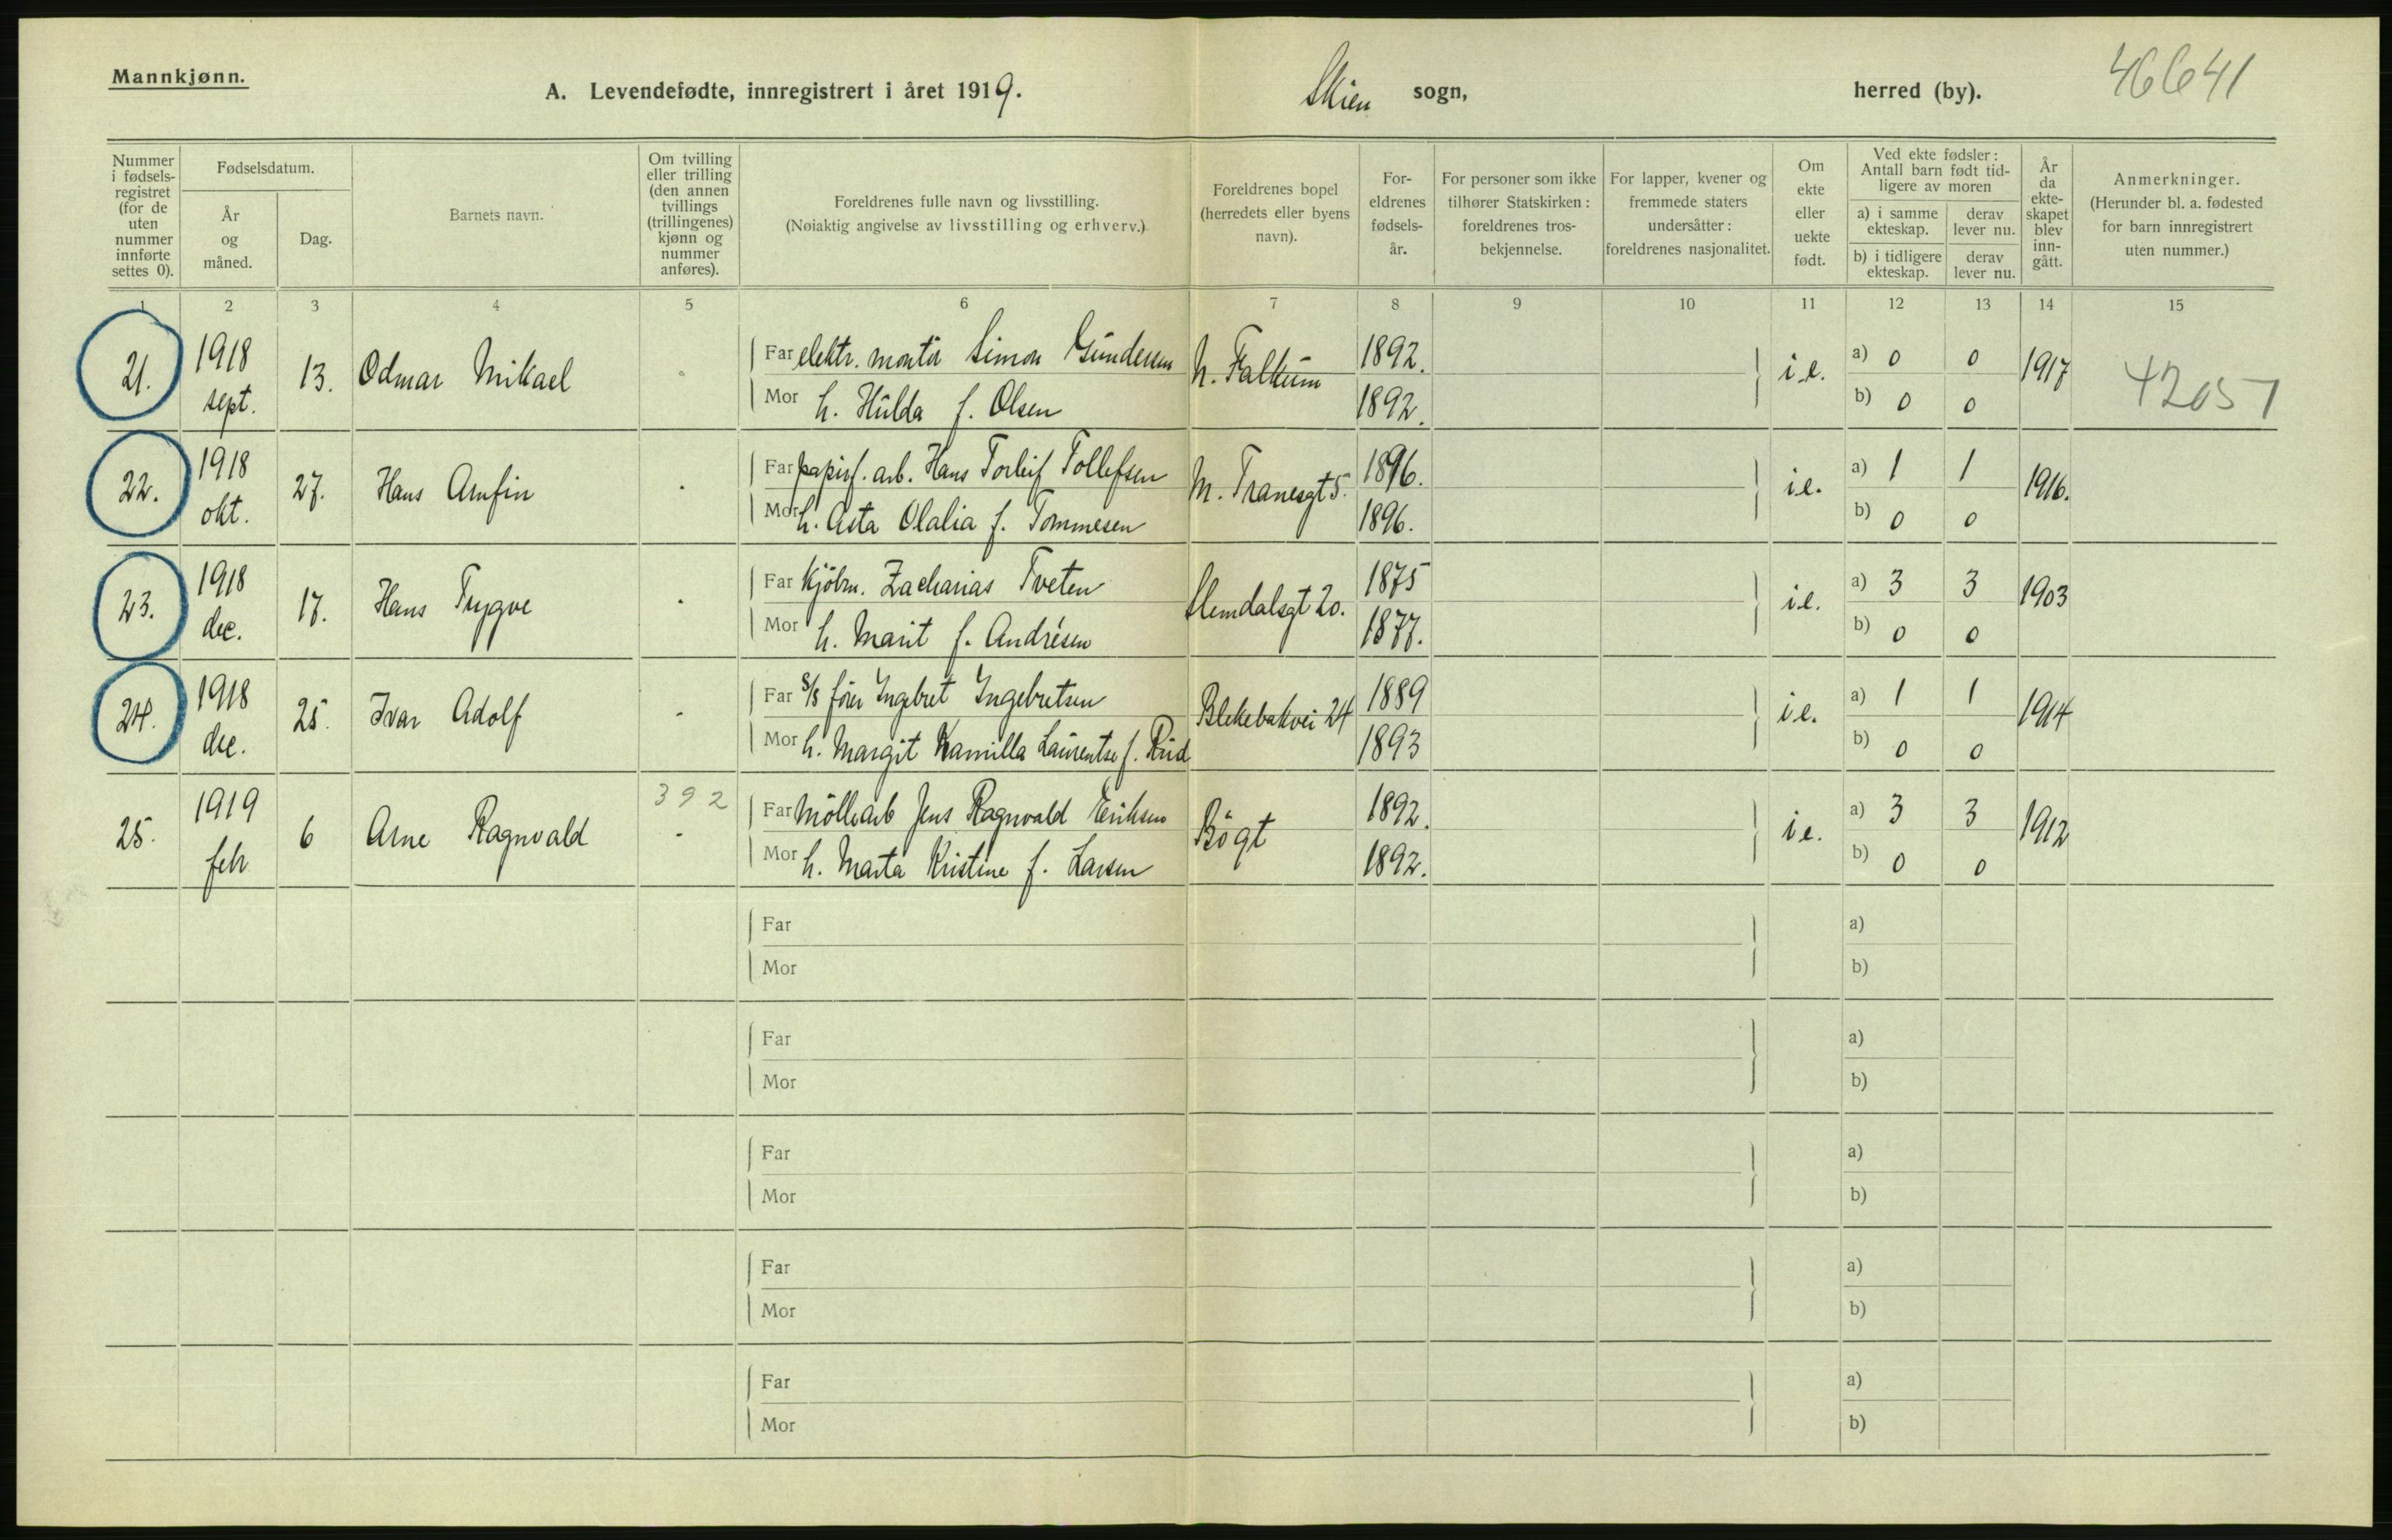 Mannkjønn.
A. Levendefødte, innregistrert i året 1919.
Skien sogn,
herred (by).
46641
Nummer i fødsels-registret (for de uten nummer innførte settes 0).
Fødselsdatum.
År og måned.
Dag.
Barnets navn.
Om tvilling eller trilling (den annen tvillings (trillingenes) kjønn og nummer anføres).
Foreldrenes fulle navn og livsstilling.
(Nøiaktig angivelse av livsstilling og erhverv.)
Foreldrenes bopel (herredets eller byens navn).
For-eldrenes fødsels-år.
For personer som ikke tilhører Statskirken: foreldrenes tros-bekjennelse.
For lapper, kvener og fremmede staters undersåtter: foreldrenes nasjonalitet.
Om ekte eller uekte født.
Ved ekte fødsler: Antall barn født tid-ligere av moren
a) i samme ekteskap.
derav lever nu.
b) i tidligere ekteskap.
derav lever nu.
År da ekte-skapet blev inn-gått.
Anmerkninger.
(Herunder bl. a. fødested for barn innregistrert uten nummer.)
1 2 3 4 5 6 7 8 9 10 11 12 13 14 15
21. 1918 sept. 13. Odmar Mikael
Far elektr. montör Simon Gundersen
Mor h. Hulda f. Olsen
N. Falkum
1892.
1892.
i.e.
a) 0 0
b) 0 0
1917
42057
22. 1918 okt. 27. Hans Arnfin -
Far papirf. arb. Hans Torleif Tollefsen
Mor h. Asta Olalia f. Tommesen
M. Tranesgt 5.
1896.
1896.
i.e.
a) 1 1
b) 0 0
1916.
23. 1918 dec. 17. Hans Trygve -
Far Kjöbm. Zacharias Tveten
Mor h. Marit f. Andrésen
Slemdalsgt 20.
1875
1877.
i.e.
a) 3 3
b) 0 0
1903
24. 1918 dec. 25. Ivar Adolf -
Far S/S förer Ingebret Ingebretsen
Mor h. Margit Kamilla Laurentse f. Rud
Blekebakvei 24
1889
1893
i.e.
a) 1 1
b) 0 0
1914
25. 1919 febr 6 Arne Ragnvald 392 -
Far Möllearb Jens Ragnvald Eriksen
Mor h. Marta Kristine f. Larsen
Bögt
1892.
1892.
i.e.
a) 3 3
b) 0 0
1912
Far
Mor
a)
b)
Far
Mor
a)
b)
Far
Mor
a)
b)
Far
Mor
a)
b)
Far
Mor
a)
b)